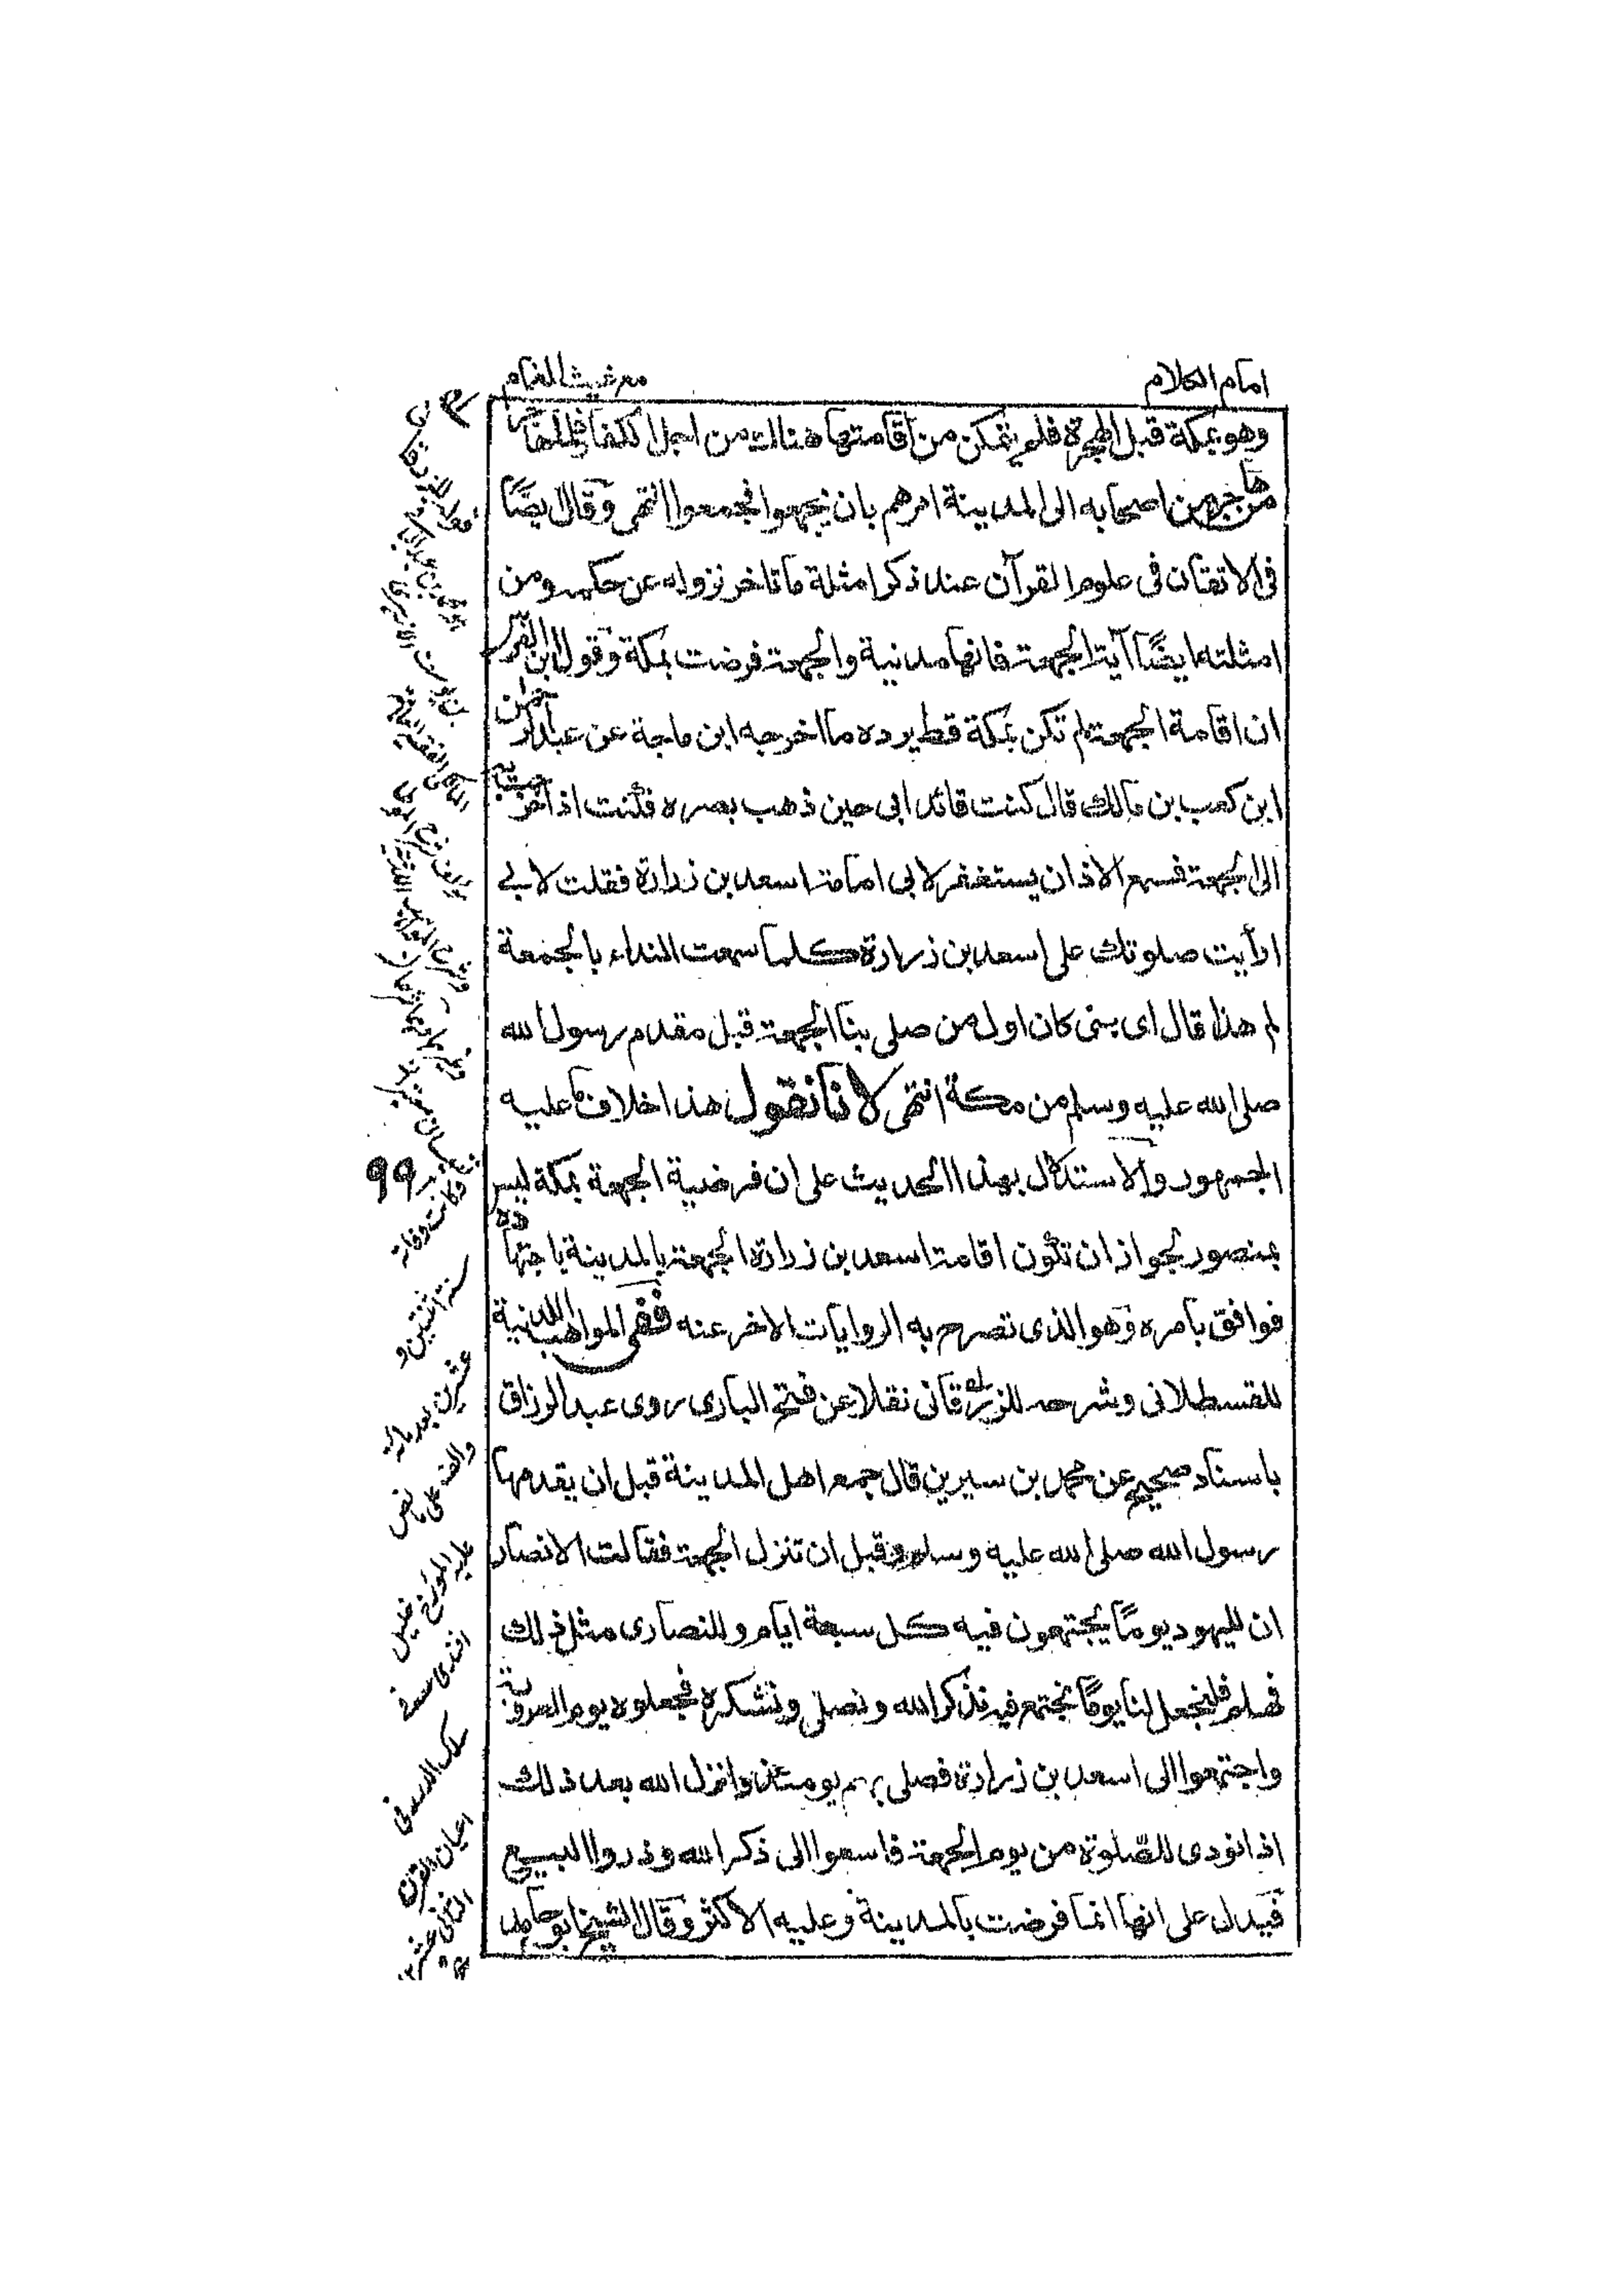 امام الكلام
مع غيث الغمام
وهو بمكة قبل الهجرة فلم يتمكن من اقامتها هنالك من اجل الكفار فلما هاجر
من هاجر من اصحابه الى المدينة امرهم بان يجمعوا فجمعوا انتهى وقال ايضًا
فى الاتقان فى علوم القرآن عند ذكر امثلة ما تاخر نزوله عن حكمه ومن
امثلته ايضًا آية الجمعة فانها مدنية والجمعة فرضت بمكة وقول ابن الفرس
ان اقامة الجمعة لم تكن بمكة قط يرده ما اخرجه ابن ماجة عن عبد الرحمن
ابن كعب بن مالك قال كنت قائد ابى حين ذهب بصره فكنت اذا خرجت به
الى الجمعة فسمع الاذان يستغفر لابى امامة اسعد بن زرارة فقلت لابے
ارأيت صلوتك على اسعد بن زرارة كلما سمعت النداء بالجمعة
لم هذا قال اى بنى كان اول من صلى بنا الجمعة قبل مقدم رسول الله
صلى الله عليه وسلم من مكة انتهى لانا نقول هذا خلاف ما عليه
الجمهور والاستدلال بهذا الحديث على ان فرضية الجمعة بمكة ليس
بمنصور لجواز ان تكون اقامة اسعد بن زرارة الجمعة بالمدينة باجتهاده
فوافق بامره وهو الذى تصرح به الروايات الاخر عنه ففى المواهب اللدنية
للقسطلانى وشرحه للزرقانى نقلا عن فتح البارى روى عبد الرزاق
باسناد صحيح عن محمد بن سيرين قال جمع اهل المدينة قبل ان يقدمها
رسول الله صلى الله عليه وسلم وقبل ان تنزل الجمعة فقالت الانصار
ان لليهود يومًا يجتمعون فيه كل سبعة ايام وللنصارى مثل ذلك
فهلم فلنجعل لنا يومًا نجتمع فيه نذكر الله ونصلى ونشكره فجعلوه يوم العروبة
واجتمعوا الى اسعد بن زرارة فصلى بهم يومئذ وانزل الله بعد ذلك
اذا نودى للصّلوة من يوم الجمعة فاسعوا الى ذكر الله وذروا البيع
فيدل على انها انما فرضت بالمدينة وعليه الاكثر وقال الشيخ ابو حامد
وكانت وفاته
سنة اثنتين و
عشرين بعد مائة
والف على ما نص
عليه المورخ خليل
افندى
سلك الدرر فى
اعيان القرن
الثانى عشر